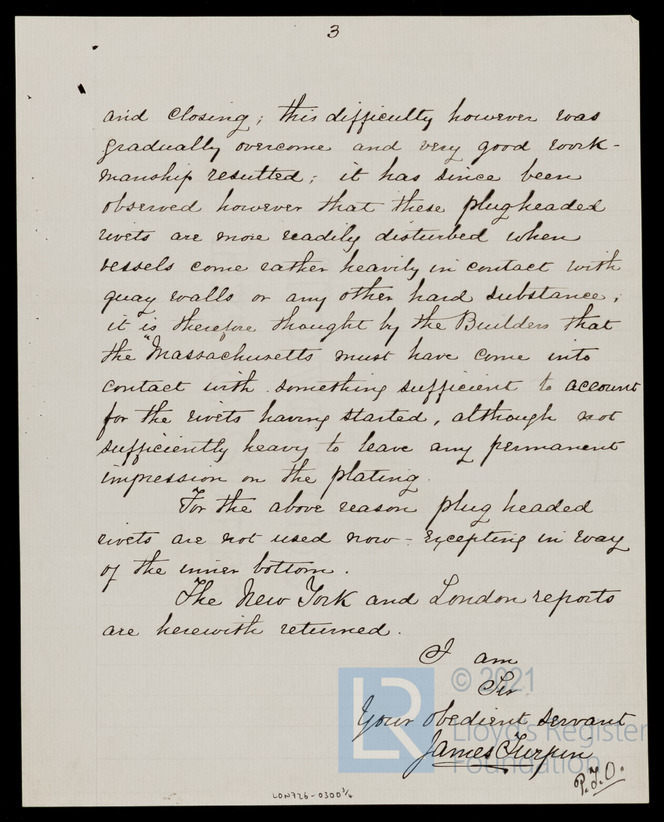 3
and closing; this difficulty however was
gradually overcome and very good work-
manship resulted; it has since been
observed however that these plugheaded
rivets are more readily disturbed when
vessels come rather heavily in contact with
quay walls or any other hard substance;
it is therefore thought by the Builders that
the "Massachusetts must have come into
contact with something sufficient to account
for the rivets having started, although not
sufficiently heavy to leave any permanent
impression on the plating.
For the above reason plug headed
rivets are not used now - excepting in way
of the inner bottom.
The New York and London reports
are herewith returned.
I am
Sir
Your obedient servant
James Turpin
P.T.O.
LON726-0300 3/4
LR
© 2021
Lloyd's Register
Foundation